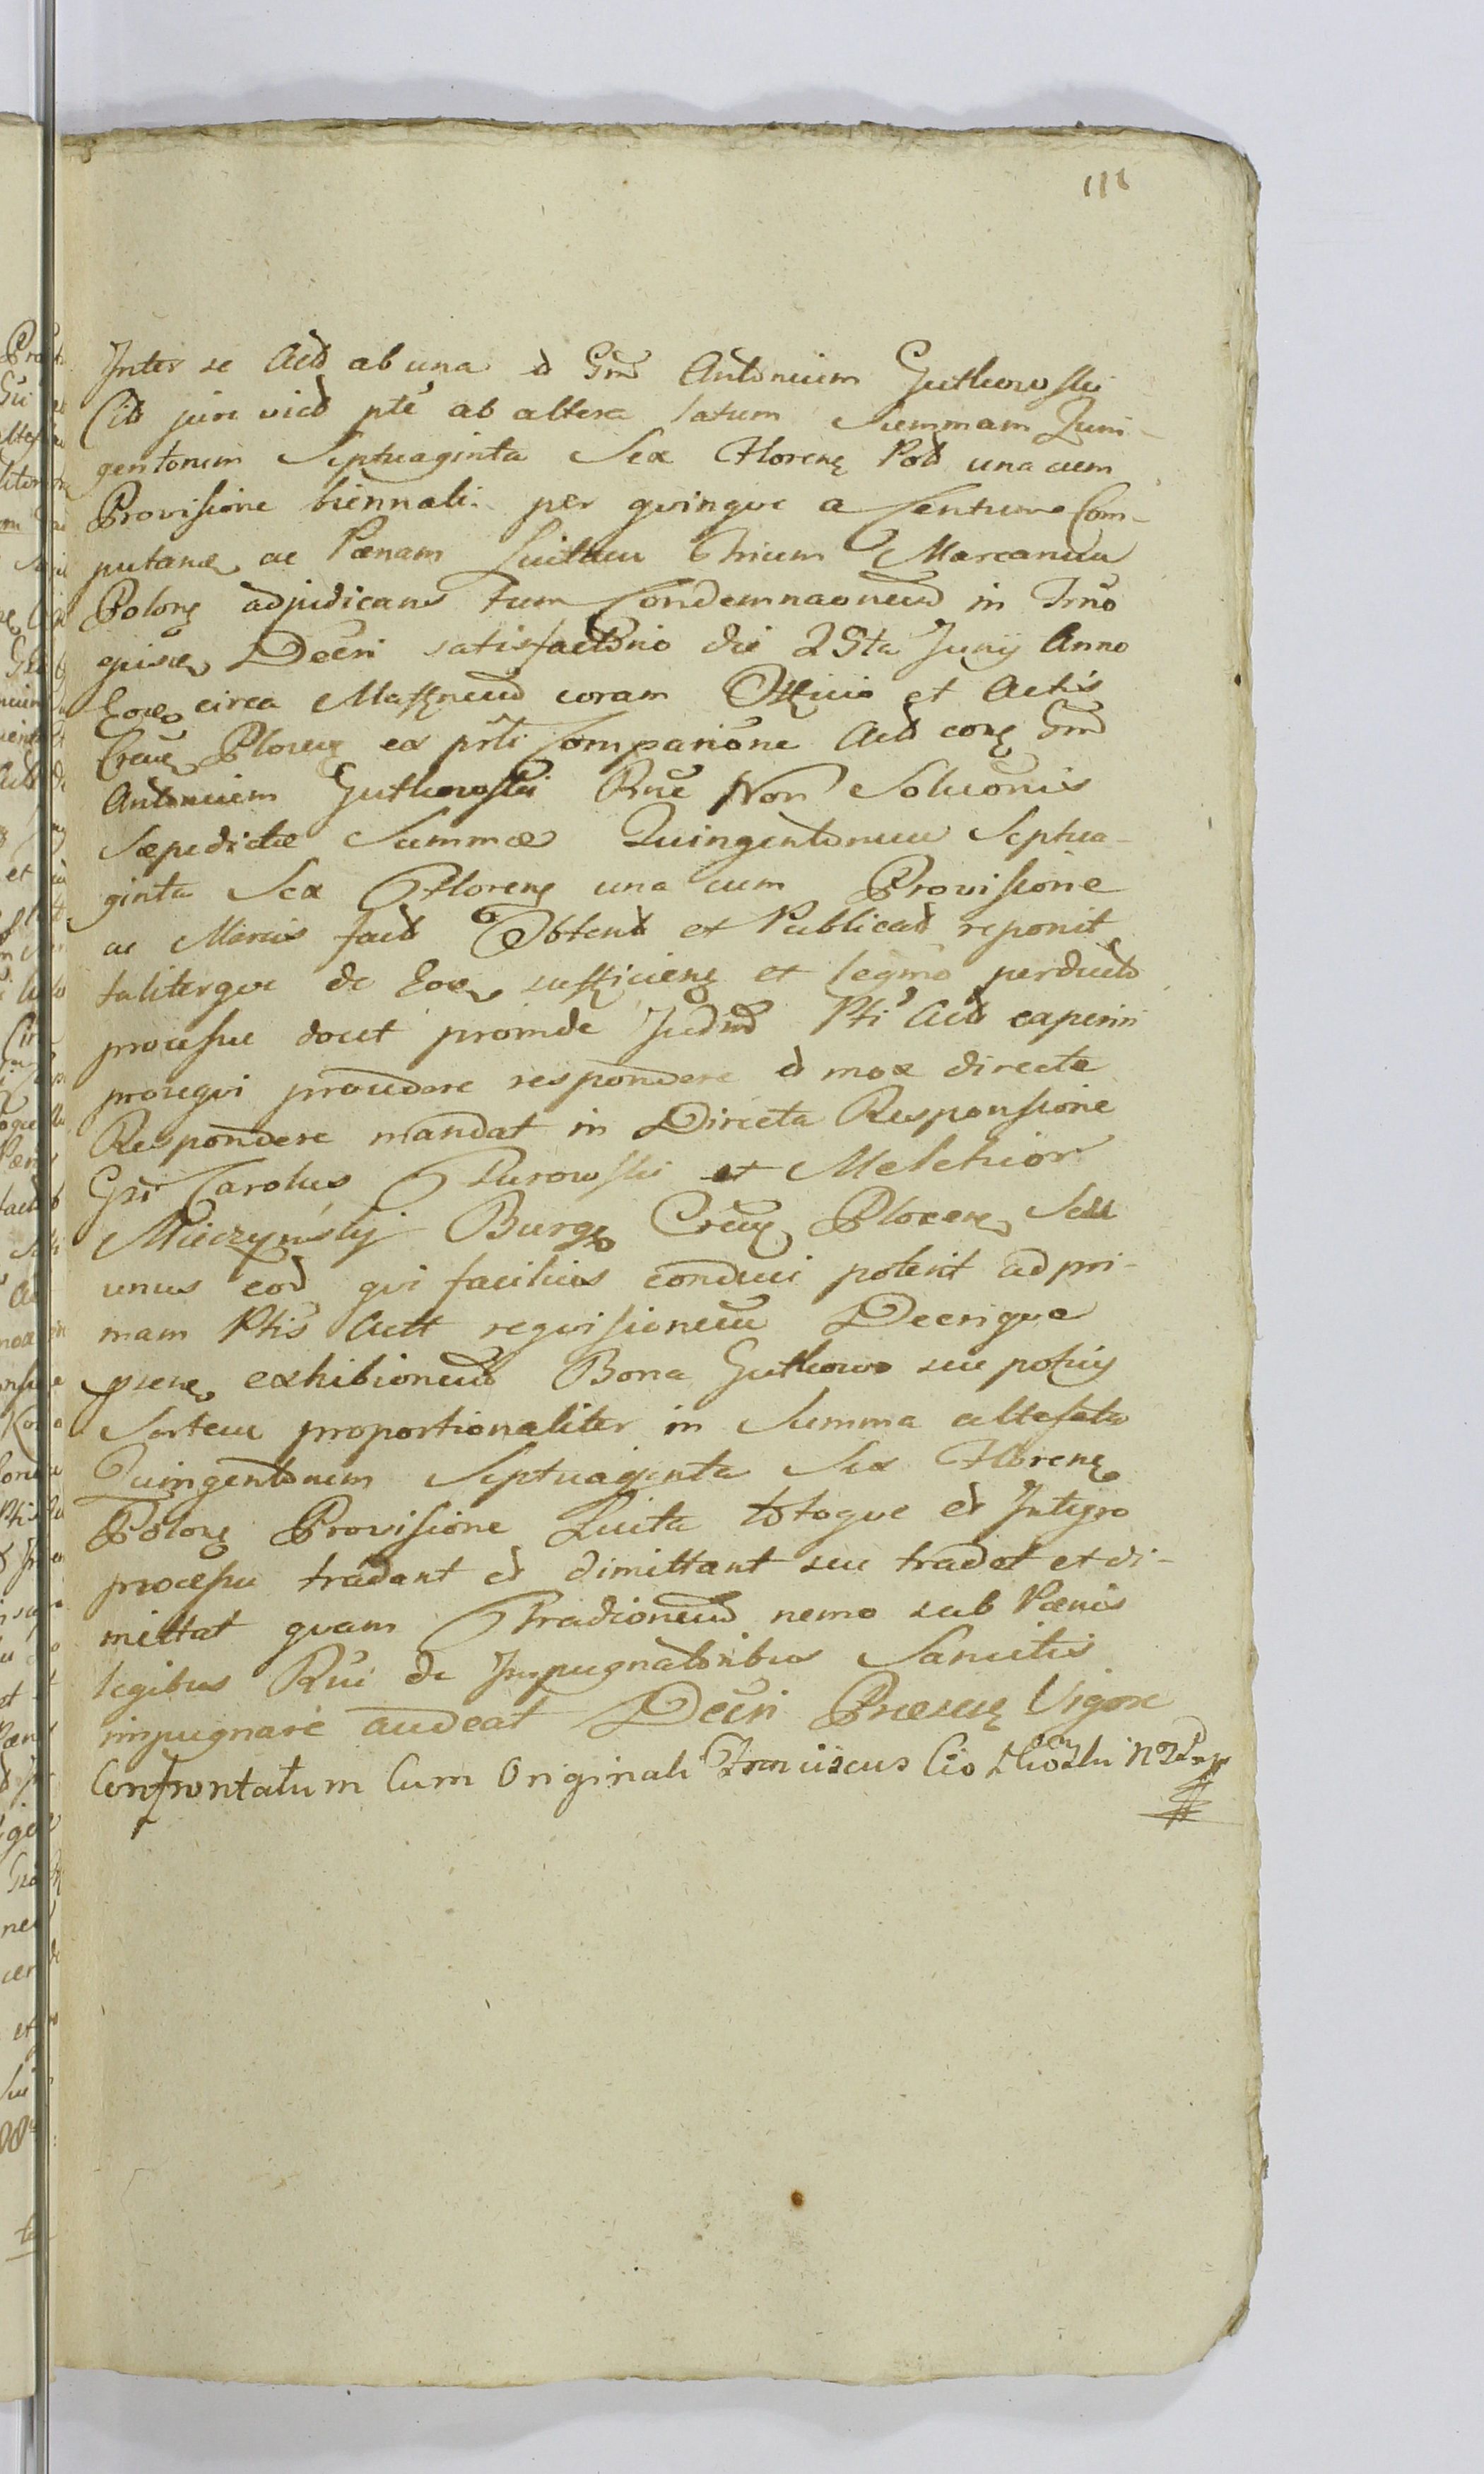 111
Inter se Actt ab una et Gnd Antonium Gutkowski
Citt jure vict pte ab altera latum Summam Quin-
gentorum Septuaginta Sex Floreng Pod una cum
Provisione biennali per quinque a Centum Com-
putang ac Pœnam Luitam Trium Marcarum
Polong adjudicans tum Condemnaonem in Trno
Decri satisfactorio die 25ta Junij Anno
Eog circa coram Officio et Actis
Creng Ploceng ex prti Comparione Actt cong Gnd
Antonium Gutkowski Rne Non Soluonis
Sæpedictæ Summæ Quingentorum Septua-
ginta Sex Floreng una cum Provisione
ac Marcis fact Obtent et Publicat reponit
taliterque de Eog sufficieng et legmo perducto
processu docet proinde Judnd Pti Actt caperni
prosequi procedere respondere et mox directe
Respondere mandat in Directa Responsione
Gsi Carolus Turowski et Melchior
Mieczyński Burg Creng Ploceng Seu
unus eod qui facilius conduci poterit ad pri-
mam Ptis Actt requisionem Decrique
pseng exhibionem Bona Gutkowo seu potius
Sortem proportionaliter in Summa altefata
Quingentorum Septuaginta Sex Floreng
Polong Provisione Luita totoque et Integro
processu tradant et dimittant seu tradet et di-
mittat quam Tradionem nemo sub Pœnis
legibus Rni de Impugnatoribus Sancitis
impugnare audeat Decri Præseng Vigore
Confrontatum Cum Originali Franciscus